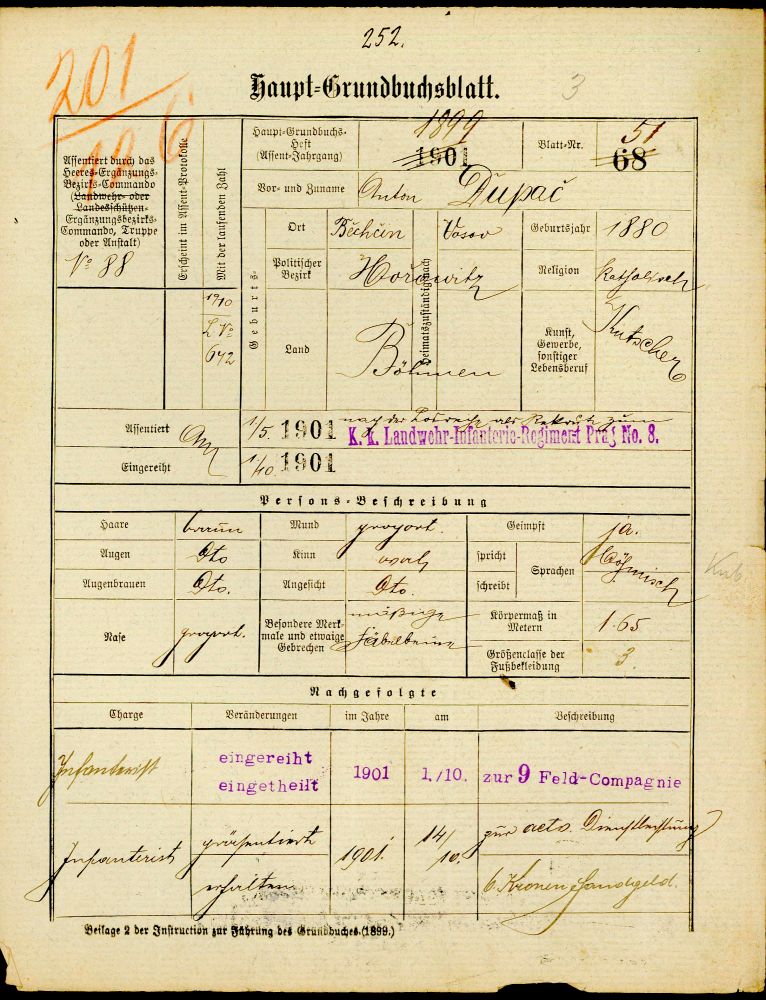 252.
201
10 6
Haupt-Grundbuchsblatt.
3
Assentiert durch das
Heeres-Ergänzungs-
Bezirks-Commando
(Landwehr- oder
Landesschützen-
Ergänzungsbezirks-
Commando, Truppe
oder Anstalt)
No 88
Erscheint im Assent-Protokolle
Mit der laufenden Zahl
1910
642
Haupt-Grundbuchs-
Heft
(Assent-Jahrgang)
1899
1901
Blatt-Nr.
51
68
Vor- und Zuname
Anton Dupač
Geburts-
Ort
Běchčin
Heimatszuständig nach
Vosov
Geburtsjahr
1880
Politischer
Bezirk
Hořowitz
Religion
katholisch
Land
Böhmen
Kunst,
Gewerbe,
sonstiger
Lebensberuf
Kutscher
Assentiert
Am
1/5. 1901
nach der Losreihe als Rekrut zum
K. k. Landwehr-Infanterie-Regiment Prag No. 8.
Eingereiht
1/10. 1901
Persons-Beschreibung
Haare
braun
Mund
proport.
Geimpft
ja.
Augen
dto
Kinn
oval
spricht
schreibt
Sprachen
böhmisch
Kub
Augenbrauen
dto.
Angesicht
dto.
Nase
proport.
Besondere Merk-
male und etwaige
Gebrechen
mäßige
Säbelbeine
Körpermaß in
Metern
1·65
Größenclasse der
Fußbekleidung
3.
Nachgefolgte
Charge
Veränderungen
im Jahre
am
Beschreibung
Infanterist
eingereiht
eingetheilt
1901
1./10.
zur 9 Feld-Compagnie
Infanterist
präsentiert
1901.
14/
10.
zur activ. Dienstleistung
erhalten
6 Kronen Handgeld.
Beilage 2 der Instruction zur Führung des Grundbuches (1899.)